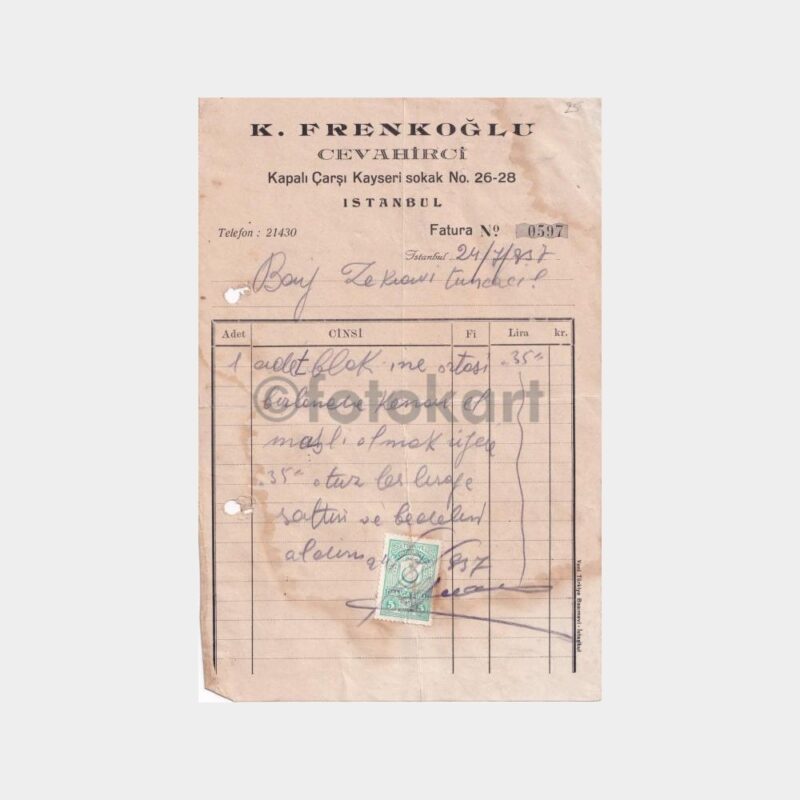 25
K. FRENKOĞLU
CEVAHİRCİ
Kapalı Çarşı Kayseri sokak No. 26-28
ISTANBUL
Telefon : 21430
Fatura Nº 0597
İstanbul 24/7/937
Bay Zekravi
Adet CİNSİ Fi Lira kr.
1 adet blok ortası 35
©fotokart
olmak üzere
35 otuz beş liraya
sattım ve bedelini
aldım 24 937
5 5
Yeni Türkiye Basımevi - İstanbul